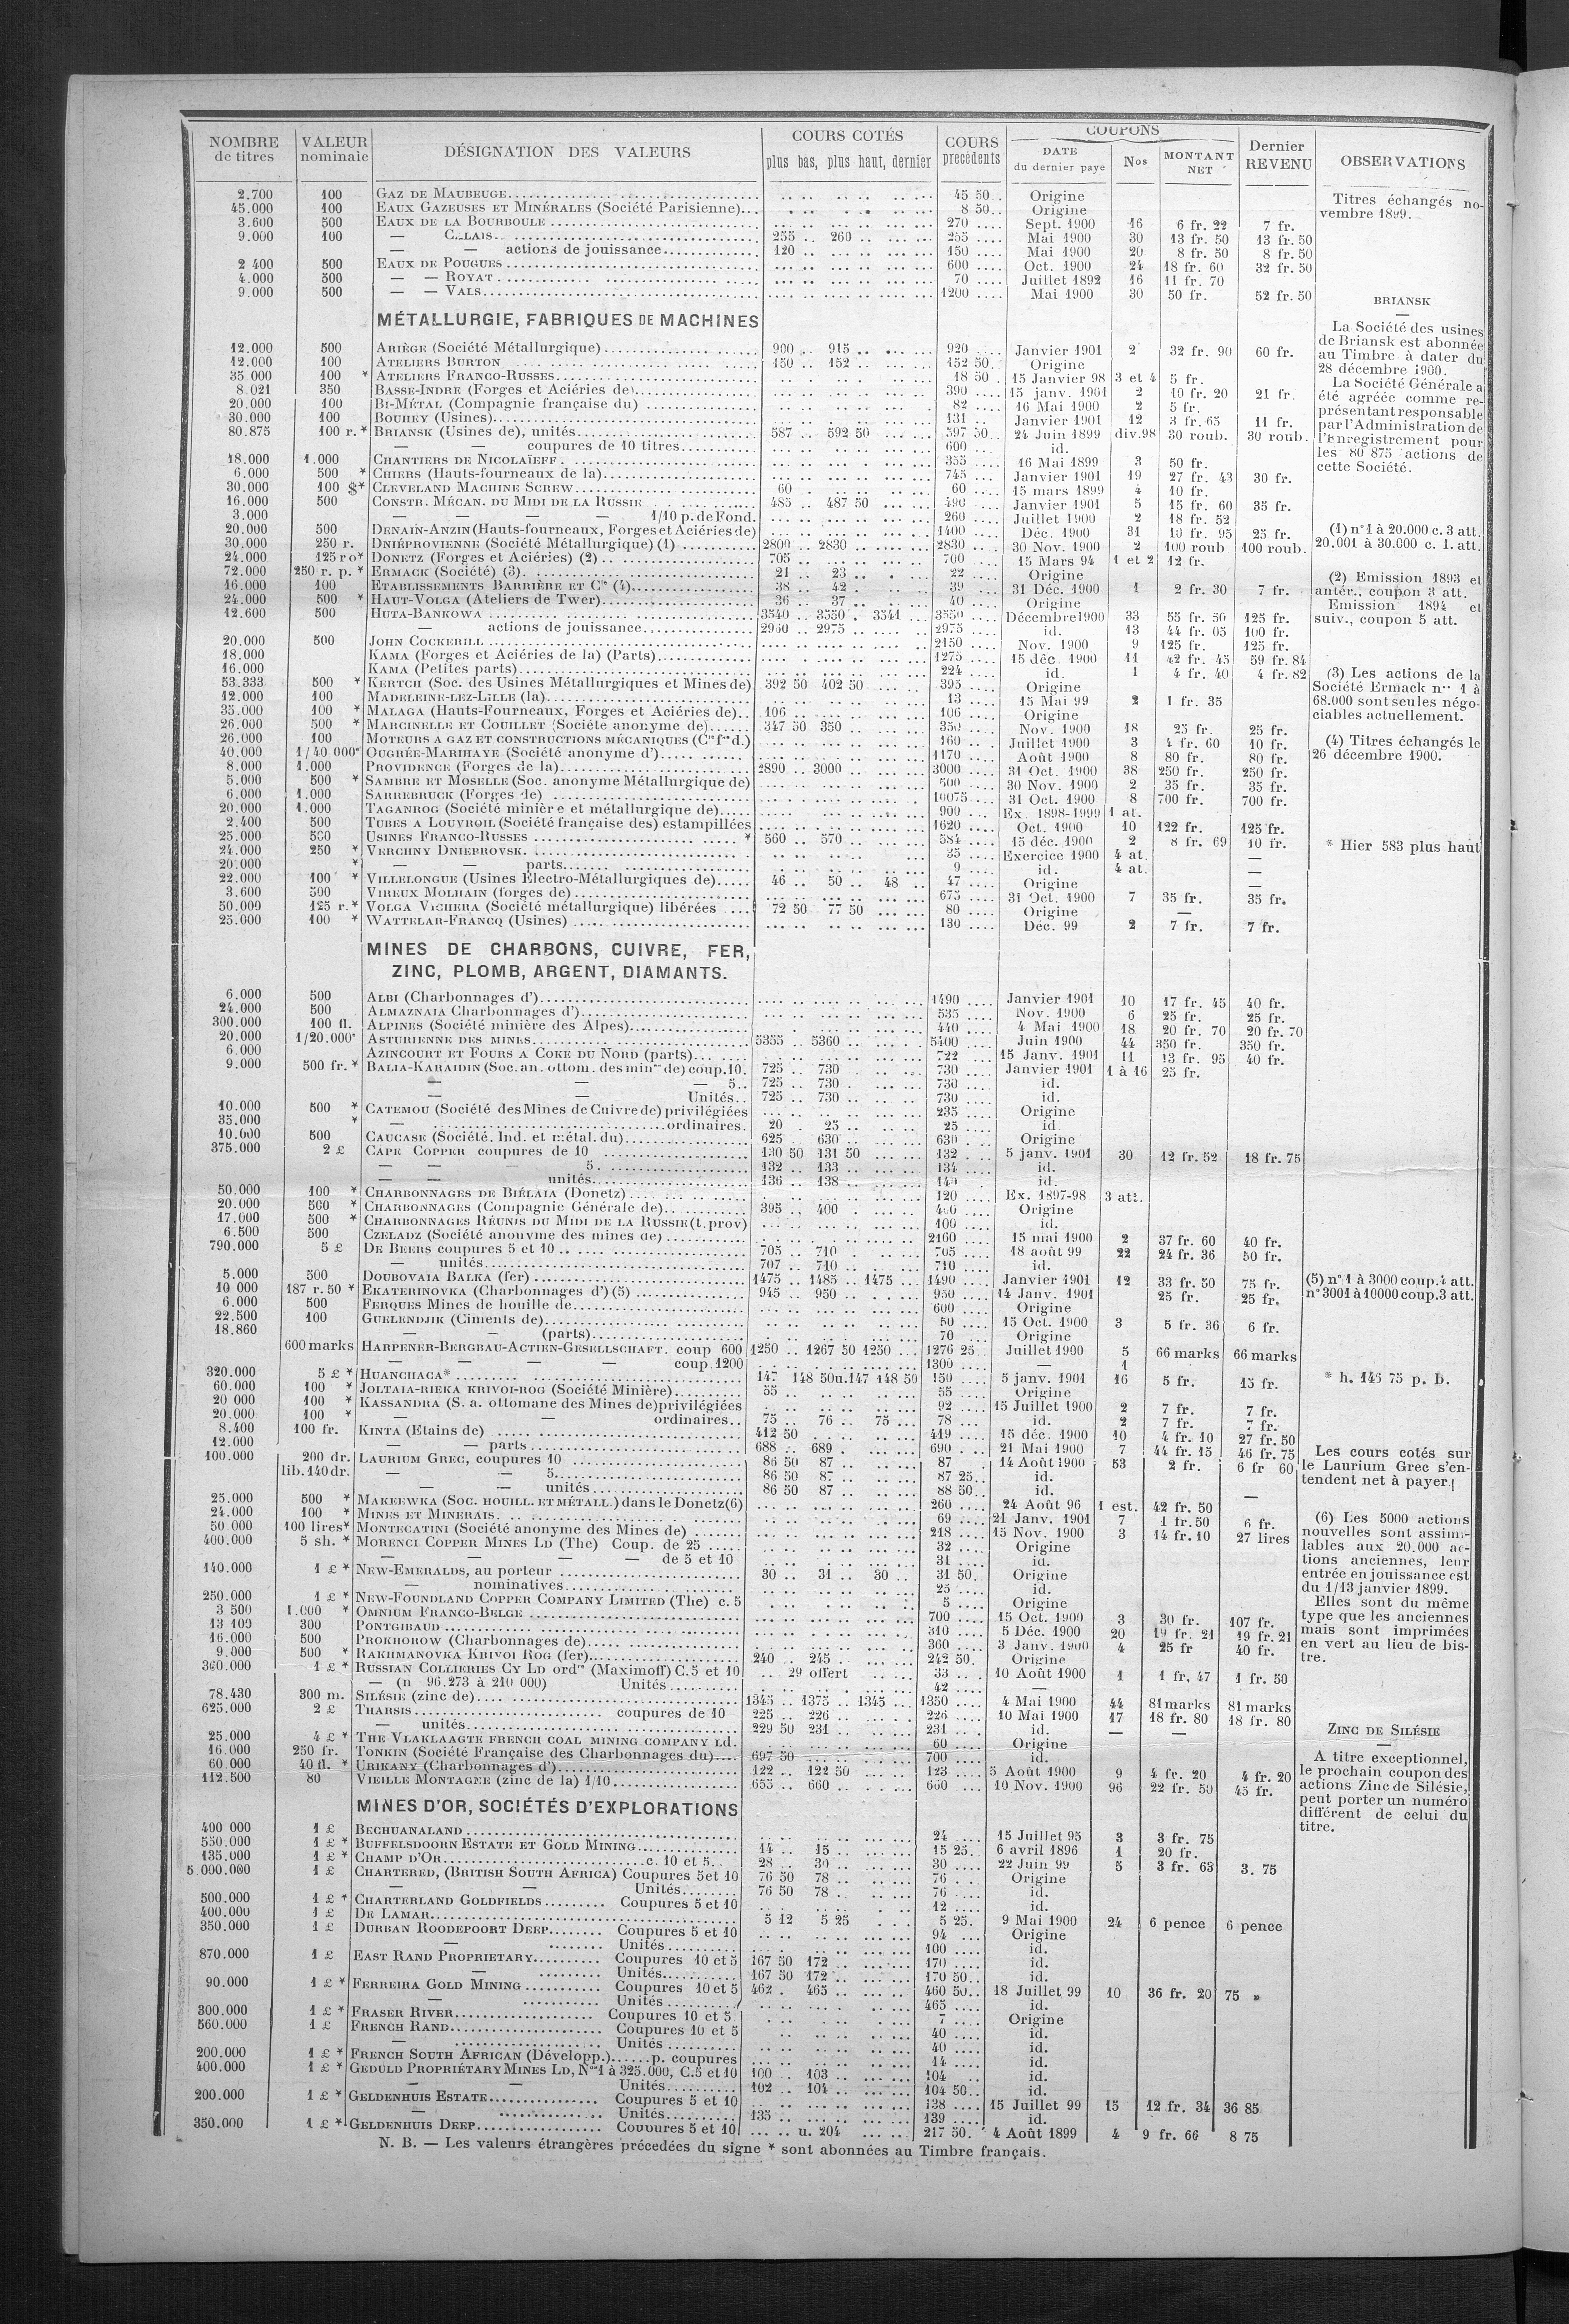 NOMBRE de titres | VALEUR nominale | DÉSIGNATION DES VALEURS | COURS COTÉS plus bas, plus haut, dernier | COURS précédents | COUPONS DATE du dernier payé | Nos | MONTANT NET | Dernier REVENU | OBSERVATIONS
2.700 | 100 | GAZ DE MAUBEUGE | 45 50 | Origine
45.000 | 100 | EAUX GAZEUSES ET MINÉRALES (Société Parisienne) | 8 50 | Origine
3.600 | 500 | EAUX DE LA BOURBOULE | 270 | Sept. 1900 | 16 | 6 fr. 22 | 7 fr.
9.000 | 100 | — CALAIS | 255 | 260 | 255 | Mai 1900 | 30 | 13 fr. 50 | 13 fr. 50
— — actions de jouissance | 120 | 150 | Mai 1900 | 20 | 8 fr. 50 | 8 fr. 50
2 400 | 500 | EAUX DE POUGUES | 600 | Oct. 1900 | 24 | 18 fr. 60 | 32 fr. 50
4.000 | 500 | — — ROYAT | 70 | Juillet 1892 | 16 | 11 fr. 70
9.000 | 500 | — — VALS | 1200 | Mai 1900 | 30 | 50 fr. | 52 fr. 50
MÉTALLURGIE, FABRIQUES DE MACHINES
12.000 | 500 | ARIÈGE (Société Métallurgique) | 900 | 915 | 920 | Janvier 1901 | 2 | 32 fr. 90 | 60 fr.
12.000 | 100 | ATELIERS BURTON | 150 | 152 | 152 50 | Origine
35 000 | 100 * | ATELIERS FRANCO-RUSSES | 18 50 | 15 Janvier 98 | 3 et 4 | 5 fr.
8.021 | 350 | BASSE-INDRE (Forges et Aciéries de) | 390 | 15 janv. 1901 | 2 | 10 fr. 20 | 21 fr.
20.000 | 100 | BI-MÉTAL (Compagnie française du) | 82 | 16 Mai 1900 | 2 | 5 fr.
30.000 | 100 | BOUHEY (Usines) | 131 | Janvier 1901 | 12 | 3 fr. 65 | 11 fr.
80.875 | 100 r. * | BRIANSK (Usines de), unités | 587 | 592 50 | 597 50 | 24 Juin 1899 | div.98 | 30 roub. | 30 roub.
— coupures de 10 titres | 600 | id.
18.000 | 1.000 | CHANTIERS DE NICOLAÏEFF | 355 | 16 Mai 1899 | 3 | 50 fr.
6.000 | 500 * | CHIERS (Hauts-fourneaux de la) | 745 | Janvier 1901 | 19 | 27 fr. 43 | 30 fr.
30.000 | 100 $* | CLEVELAND MACHINE SCREW | 60 | 60 | 15 mars 1899 | 4 | 10 fr.
16.000 | 500 | CONSTR. MÉCAN. DU MIDI DE LA RUSSIE | 485 | 487 50 | 490 | Janvier 1901 | 5 | 15 fr. 60 | 35 fr.
3.000 | — — — — 1/10 p. de Fond. | 260 | Juillet 1900 | 2 | 18 fr. 52
20.000 | 500 | DENAIN-ANZIN (Hauts-fourneaux, Forges et Aciéries de) | 1400 | Déc. 1900 | 31 | 19 fr. 95 | 25 fr.
30.000 | 250 r. | DNIÉPROVIENNE (Société Métallurgique) (1) | 2800 | 2830 | 2830 | 30 Nov. 1900 | 2 | 100 roub | 100 roub.
24.000 | 125 r o* | DONETZ (Forges et Aciéries) (2) | 705 | 700 | 15 Mars 94 | 1 et 2 | 12 fr.
72.000 | 250 r. p. * | ERMACK (Société) (3) | 21 | 23 | 22 | Origine
16.000 | 100 | ETABLISSEMENTS BARRIÈRE ET Cie (4) | 38 | 42 | 39 | 31 Déc. 1900 | 1 | 2 fr. 30 | 7 fr.
24.000 | 500 * | HAUT-VOLGA (Ateliers de Twer) | 36 | 37 | 40 | Origine
12.600 | 500 | HUTA-BANKOWA | 3540 | 3550 | 3541 | 3550 | Décembre 1900 | 33 | 55 fr. 50 | 125 fr.
— actions de jouissance | 2950 | 2975 | 2975 | id. | 13 | 44 fr. 05 | 100 fr.
20.000 | 500 | JOHN COCKERILL | 2150 | Nov. 1900 | 9 | 125 fr. | 125 fr.
18.000 | KAMA (Forges et Aciéries de la) (Parts) | 1275 | 15 déc. 1900 | 11 | 42 fr. 45 | 59 fr. 84
16.000 | KAMA (Petites parts) | 224 | id. | 1 | 4 fr. 40 | 4 fr. 82
53.333 | 500 * | KERTCH (Soc. des Usines Métallurgiques et Mines de) | 392 50 | 402 50 | 395 | Origine
12.000 | 100 | MADELEINE-LEZ-LILLE (la) | 13 | 15 Mai 99 | 2 | 1 fr. 35
35.000 | 100 * | MALAGA (Hauts-Fourneaux, Forges et Aciéries de) | 106 | 106 | Origine
26.000 | 500 * | MARCINELLE ET COUILLET (Société anonyme de) | 347 50 | 350 | 350 | Nov. 1900 | 18 | 25 fr. | 25 fr.
26.000 | 100 | MOTEURS A GAZ ET CONSTRUCTIONS MÉCANIQUES (Cie fse d.) | 160 | Juillet 1900 | 3 | 4 fr. 60 | 10 fr.
40.000 | 1/40 000e | OUGRÉE-MARIHAYE (Société anonyme d') | 1170 | Août 1900 | 8 | 80 fr. | 80 fr.
8.000 | 1.000 | PROVIDENCE (Forges de la) | 2890 | 3000 | 3000 | 31 Oct. 1900 | 38 | 250 fr. | 250 fr.
5.000 | 500 * | SAMBRE ET MOSELLE (Soc. anonyme Métallurgique de) | 500 | 30 Nov. 1900 | 2 | 35 fr. | 35 fr.
6.000 | 1.000 | SARREBRUCK (Forges de) | 10075 | 31 Oct. 1900 | 8 | 700 fr. | 700 fr.
20.000 | 1.000 | TAGANROG (Société minière et métallurgique de) | 900 | Ex. 1898-1999 | 1 at.
2.400 | 500 | TUBES A LOUVROIL (Société française des) estampillées | 1620 | Oct. 1900 | 10 | 122 fr. | 125 fr.
25.000 | 500 | USINES FRANCO-RUSSES * | 560 | 570 | 584 | 15 déc. 1900 | 2 | 8 fr. 69 | 10 fr.
24.000 | 250 * | VERCHNY DNIEPROVSK | 35 | Exercice 1900 | 4 at. | —
20.000 | * | — — parts | 9 | id. | 4 at. | —
22.000 | 100 * | VILLELONGUE (Usines Électro-Métallurgiques de) | 46 | 50 | 48 | 47 | Origine | —
3.600 | 500 | VIREUX MOLHAIN (forges de) | 675 | 31 Oct. 1900 | 7 | 35 fr. | 35 fr.
50.000 | 125 r. * | VOLGA VICHERA (Société métallurgique) libérées | 72 50 | 77 50 | 80 | Origine | —
25.000 | 100 * | WATTELAR-FRANCQ (Usines) | 130 | Déc. 99 | 2 | 7 fr. | 7 fr.
MINES DE CHARBONS, CUIVRE, FER,
ZINC, PLOMB, ARGENT, DIAMANTS.
6.000 | 500 | ALBI (Charbonnages d') | 1490 | Janvier 1901 | 10 | 17 fr. 45 | 40 fr.
24.000 | 500 | ALMAZNAIA Charbonnages d') | 535 | Nov. 1900 | 6 | 25 fr. | 25 fr.
300.000 | 100 fl. | ALPINES (Société minière des Alpes) | 440 | 4 Mai 1900 | 18 | 20 fr. 70 | 20 fr. 70
20.000 | 1/20.000e | ASTURIENNE DES MINES | 5355 | 5360 | 5400 | Juin 1900 | 44 | 350 fr. | 350 fr.
6.000 | AZINCOURT ET FOURS A COKE DU NORD (parts) | 722 | 15 Janv. 1901 | 11 | 13 fr. 95 | 40 fr.
9.000 | 500 fr. * | BALIA-KARAIDIN (Soc. an. ottom. des mines de) coup. 10 | 725 | 730 | 730 | Janvier 1901 | 1 à 16 | 25 fr.
— — — 5 | 725 | 730 | 730 | id.
— — Unités | 725 | 730 | 730 | id.
10.000 | 500 * | CATEMOU (Société des Mines de Cuivre de) privilégiées | 235 | Origine
35.000 | * | — ordinaires | 20 | 25 | 25 | id
10.000 | 500 | CAUCASE (Société. Ind. et métal. du) | 625 | 630 | 630 | Origine
375.000 | 2 £ | CAPE COPPER coupures de 10 | 130 50 | 131 50 | 132 | 5 janv. 1901 | 30 | 12 fr. 52 | 18 fr. 75
— — — 5 | 132 | 133 | 134 | id.
— — unités | 136 | 138 | 140 | id.
50.000 | 100 * | CHARBONNAGES DE BIÉLAIA (Donetz) | 120 | Ex. 1897-98 | 3 att.
20.000 | 500 * | CHARBONNAGES (Compagnie Générale de) | 395 | 400 | 400 | Origine
17.000 | 500 * | CHARBONNAGES RÉUNIS DU MIDI DE LA RUSSIE (t. prov) | 100 | id.
6.500 | 500 | CZELADZ (Société anonyme des mines de) | 2160 | 15 mai 1900 | 2 | 37 fr. 60 | 40 fr.
790.000 | 5 £ | DE BEERS coupures 5 et 10 | 705 | 710 | 705 | 18 août 99 | 22 | 24 fr. 36 | 50 fr.
— unités | 707 | 710 | 710 | id.
5.000 | 500 | DOUBOVAIA BALKA (fer) | 1475 | 1485 | 1475 | 1490 | Janvier 1901 | 12 | 33 fr. 50 | 75 fr.
10 000 | 187 r. 50 * | EKATERINOVKA (Charbonnages d') (5) | 945 | 950 | 950 | 14 Janv. 1901 | 25 fr. | 25 fr.
6.000 | 500 | FERQUES Mines de houille de | 600 | Origine
22.500 | 100 | GUELENDJIK (Ciments de) | 50 | 15 Oct. 1900 | 3 | 5 fr. 36 | 6 fr.
18.860 | — — (parts) | 70 | Origine
600 marks | HARPENER-BERGBAU-ACTIEN-GESELLSCHAFT. coup 600 | 1250 | 1267 50 | 1250 | 1276 25 | Juillet 1900 | 5 | 66 marks | 66 marks
— — — — coup. 1200 | 1300 | — | 1
320.000 | 5 £ * | HUANCHACA* | 147 | 148 50 u. 147 148 50 | 150 | 5 janv. 1901 | 16 | 5 fr. | 15 fr.
60.000 | 100 * | JOLTAIA-RIEKA KRIVOI-ROG (Société Minière) | 55 | 55 | Origine
20 000 | 100 * | KASSANDRA (S. a. ottomane des Mines de) privilégiées | 92 | 15 Juillet 1900 | 2 | 7 fr. | 7 fr.
20.000 | 100 * | — — ordinaires | 75 | 76 | 75 | 78 | id. | 2 | 7 fr. | 7 fr.
8.400 | 100 fr. | KINTA (Etains de) | 412 50 | 419 | 15 déc. 1900 | 10 | 4 fr. 10 | 27 fr. 50
12.000 | — — parts | 688 | 689 | 690 | 21 Mai 1900 | 7 | 44 fr. 15 | 46 fr. 75
100.000 | 200 dr. | LAURIUM GREC, coupures 10 | 86 50 | 87 | 87 | 14 Août 1900 | 53 | 2 fr. | 6 fr 60
lib. 140 dr. | — — 5 | 86 50 | 87 | 87 25 | id.
— — unités | 86 50 | 87 | 88 50 | id. | —
25.000 | 500 * | MAKEEWKA (SOC. HOUILL. ET MÉTALL.) dans le Donetz (6) | 260 | 24 Août 96 | 1 est. | 42 fr. 50
24.000 | 100 * | MINES ET MINERAIS | 69 | 21 Janv. 1901 | 7 | 1 fr. 50 | 6 fr.
50 000 | 100 lires* | MONTECATINI (Société anonyme des Mines de) | 218 | 15 Nov. 1900 | 3 | 14 fr. 10 | 27 lires
400.000 | 5 sh. * | MORENCI COPPER MINES LD (The) Coup. de 25 | 32 | Origine
— — — — de 5 et 10 | 31 | id.
140.000 | 1 £ * | NEW-EMERALDS, au porteur | 30 | 31 | 30 | 31 50 | Origine
— nominatives | 25 | id.
250.000 | 1 £ * | NEW-FOUNDLAND COPPER COMPANY LIMITED (The) c. 5 | 5 | Origine
3 500 | 1.000 * | OMNIUM FRANCO-BELGE | 700 | 15 Oct. 1900 | 3 | 30 fr. | 107 fr.
13 109 | 300 | PONTGIBAUD | 310 | 5 Déc. 1900 | 20 | 19 fr. 21 | 19 fr. 21
16.000 | 500 | PROKHOROW (Charbonnages de) | 360 | 3 Janv. 1900 | 4 | 25 fr | 40 fr.
9.000 | 500 * | RAKHMANOVKA KRIVOI ROG (fer) | 240 | 245 | 242 50 | Origine
300.000 | 1 £ * | RUSSIAN COLLIERIES CY LD ordres (Maximoff) C. 5 et 10 | 29 offert | 33 | 10 Août 1900 | 1 | 1 fr. 47 | 1 fr. 50
— (n 96.273 à 210 000) Unités | 42 | —
78.430 | 300 m. | SILÉSIE (zinc de) | 1345 | 1375 | 1345 | 1350 | 4 Mai 1900 | 44 | 81 marks | 81 marks
625.000 | 2 £ | THARSIS coupures de 10 | 225 | 226 | 226 | 10 Mai 1900 | 17 | 18 fr. 80 | 18 fr. 80
— unités | 229 50 | 231 | 231 | id. | — | —
25.000 | 4 £ * | THE VLAKLAAGTE FRENCH COAL MINING COMPANY Ld. | 60 | Origine
16.000 | 250 fr. | TONKIN (Société Française des Charbonnages du) | 697 50 | 700 | id.
60.000 | 40 fl. * | URIKANY (Charbonnages d') | 122 | 122 50 | 123 | 5 Août 1900 | 9 | 4 fr. 20 | 4 fr. 20
112.500 | 80 | VIEILLE MONTAGNE (zinc de la) 1/10 | 655 | 660 | 660 | 10 Nov. 1900 | 96 | 22 fr. 50 | 45 fr.
MINES D'OR, SOCIÉTÉS D'EXPLORATIONS
400 000 | 1 £ | BECHUANALAND | 24 | 15 Juillet 95 | 3 | 3 fr. 75
550.000 | 1 £ * | BUFFELSDOORN ESTATE ET GOLD MINING | 14 | 15 | 15 25 | 6 avril 1896 | 1 | 20 fr.
135.000 | 1 £ * | CHAMP D'OR c. 10 et 5 | 28 | 30 | 30 | 22 Juin 99 | 5 | 3 fr. 63 | 3. 75
5.000.000 | 1 £ | CHARTERED, (BRITISH SOUTH AFRICA) Coupures 5 et 10 | 76 50 | 78 | 76 | Origine
— — Unités | 76 50 | 78 | 76 | id.
500.000 | 1 £ * | CHARTERLAND GOLDFIELDS Coupures 5 et 10 | 12 | id.
400.000 | 1 £ | DE LAMAR | 5 12 | 5 25 | 5 25 | 9 Mai 1900 | 24 | 6 pence | 6 pence
350.000 | 1 £ | DURBAN ROODEPOORT DEEP Coupures 5 et 10 | 94 | Origine
— Unités | 100 | id.
870.000 | 1 £ | EAST RAND PROPRIETARY Coupures 10 et 5 | 167 50 | 172 | 170 | id.
— Unités | 167 50 | 172 | 170 50 | id.
90.000 | 1 £ * | FERREIRA GOLD MINING Coupures 10 et 5 | 462 | 465 | 460 50 | 18 Juillet 99 | 10 | 36 fr. 20 | 75 »
— Unités | 465 | id.
300.000 | 1 £ * | FRASER RIVER Coupures 10 et 5 | 7 | Origine
560.000 | 1 £ | FRENCH RAND Coupures 10 et 5 | 40 | id.
— Unités | 40 | id.
200.000 | 1 £ * | FRENCH SOUTH AFRICAN (Développ.) p. coupures | 14 | id.
400.000 | 1 £ * | GEDULD PROPRIÉTARY MINES LD, Nos 1 à 325.000, C. 5 et 10 | 100 | 103 | 104 | id.
— — Unités | 102 | 104 | 104 50 | id.
200.000 | 1 £ * | GELDENHUIS ESTATE Coupures 5 et 10 | 138 | 15 Juillet 99 | 15 | 12 fr. 34 | 36 85
— Unités | 135 | 139 | id.
350.000 | 1 £ * | GELDENHUIS DEEP Coupures 5 et 10 | u. 204 | 217 50 | 4 Août 1899 | 4 | 9 fr. 66 | 8 75
N. B. — Les valeurs étrangères précédées du signe * sont abonnées au Timbre français.
Titres échangés no-
vembre 1899.
BRIANSK
—
La Société des usines
de Briansk est abonnée
au Timbre à dater du
28 décembre 1900.
La Société Générale a
été agréée comme re-
présentant responsable
par l'Administration de
l'Enregistrement pour
les 80 875 actions de
cette Société.
(1) n° 1 à 20.000 c. 3 att.
20.001 à 30.000 c. 1. att.
(2) Emission 1893 et
antér., coupon 3 att.
Emission 1894 et
suiv., coupon 5 att.
(3) Les actions de la
Société Ermack nos 1 à
68.000 sont seules négo-
ciables actuellement.
(4) Titres échangés le
26 décembre 1900.
* Hier 583 plus haut
(5) n° 1 à 3000 coup. 4 att.
n° 3001 à 10000 coup. 3 att.
* h. 146 75 p. b.
Les cours cotés sur
le Laurium Grec s'en-
tendent net à payer
(6) Les 5000 actions
nouvelles sont assimi-
lables aux 20.000 ac-
tions anciennes, leur
entrée en jouissance est
du 1/13 janvier 1899.
Elles sont du même
type que les anciennes
mais sont imprimées
en vert au lieu de bis-
tre.
ZINC DE SILÉSIE
—
A titre exceptionnel,
le prochain coupon des
actions Zinc de Silésie,
peut porter un numéro
différent de celui du
titre.